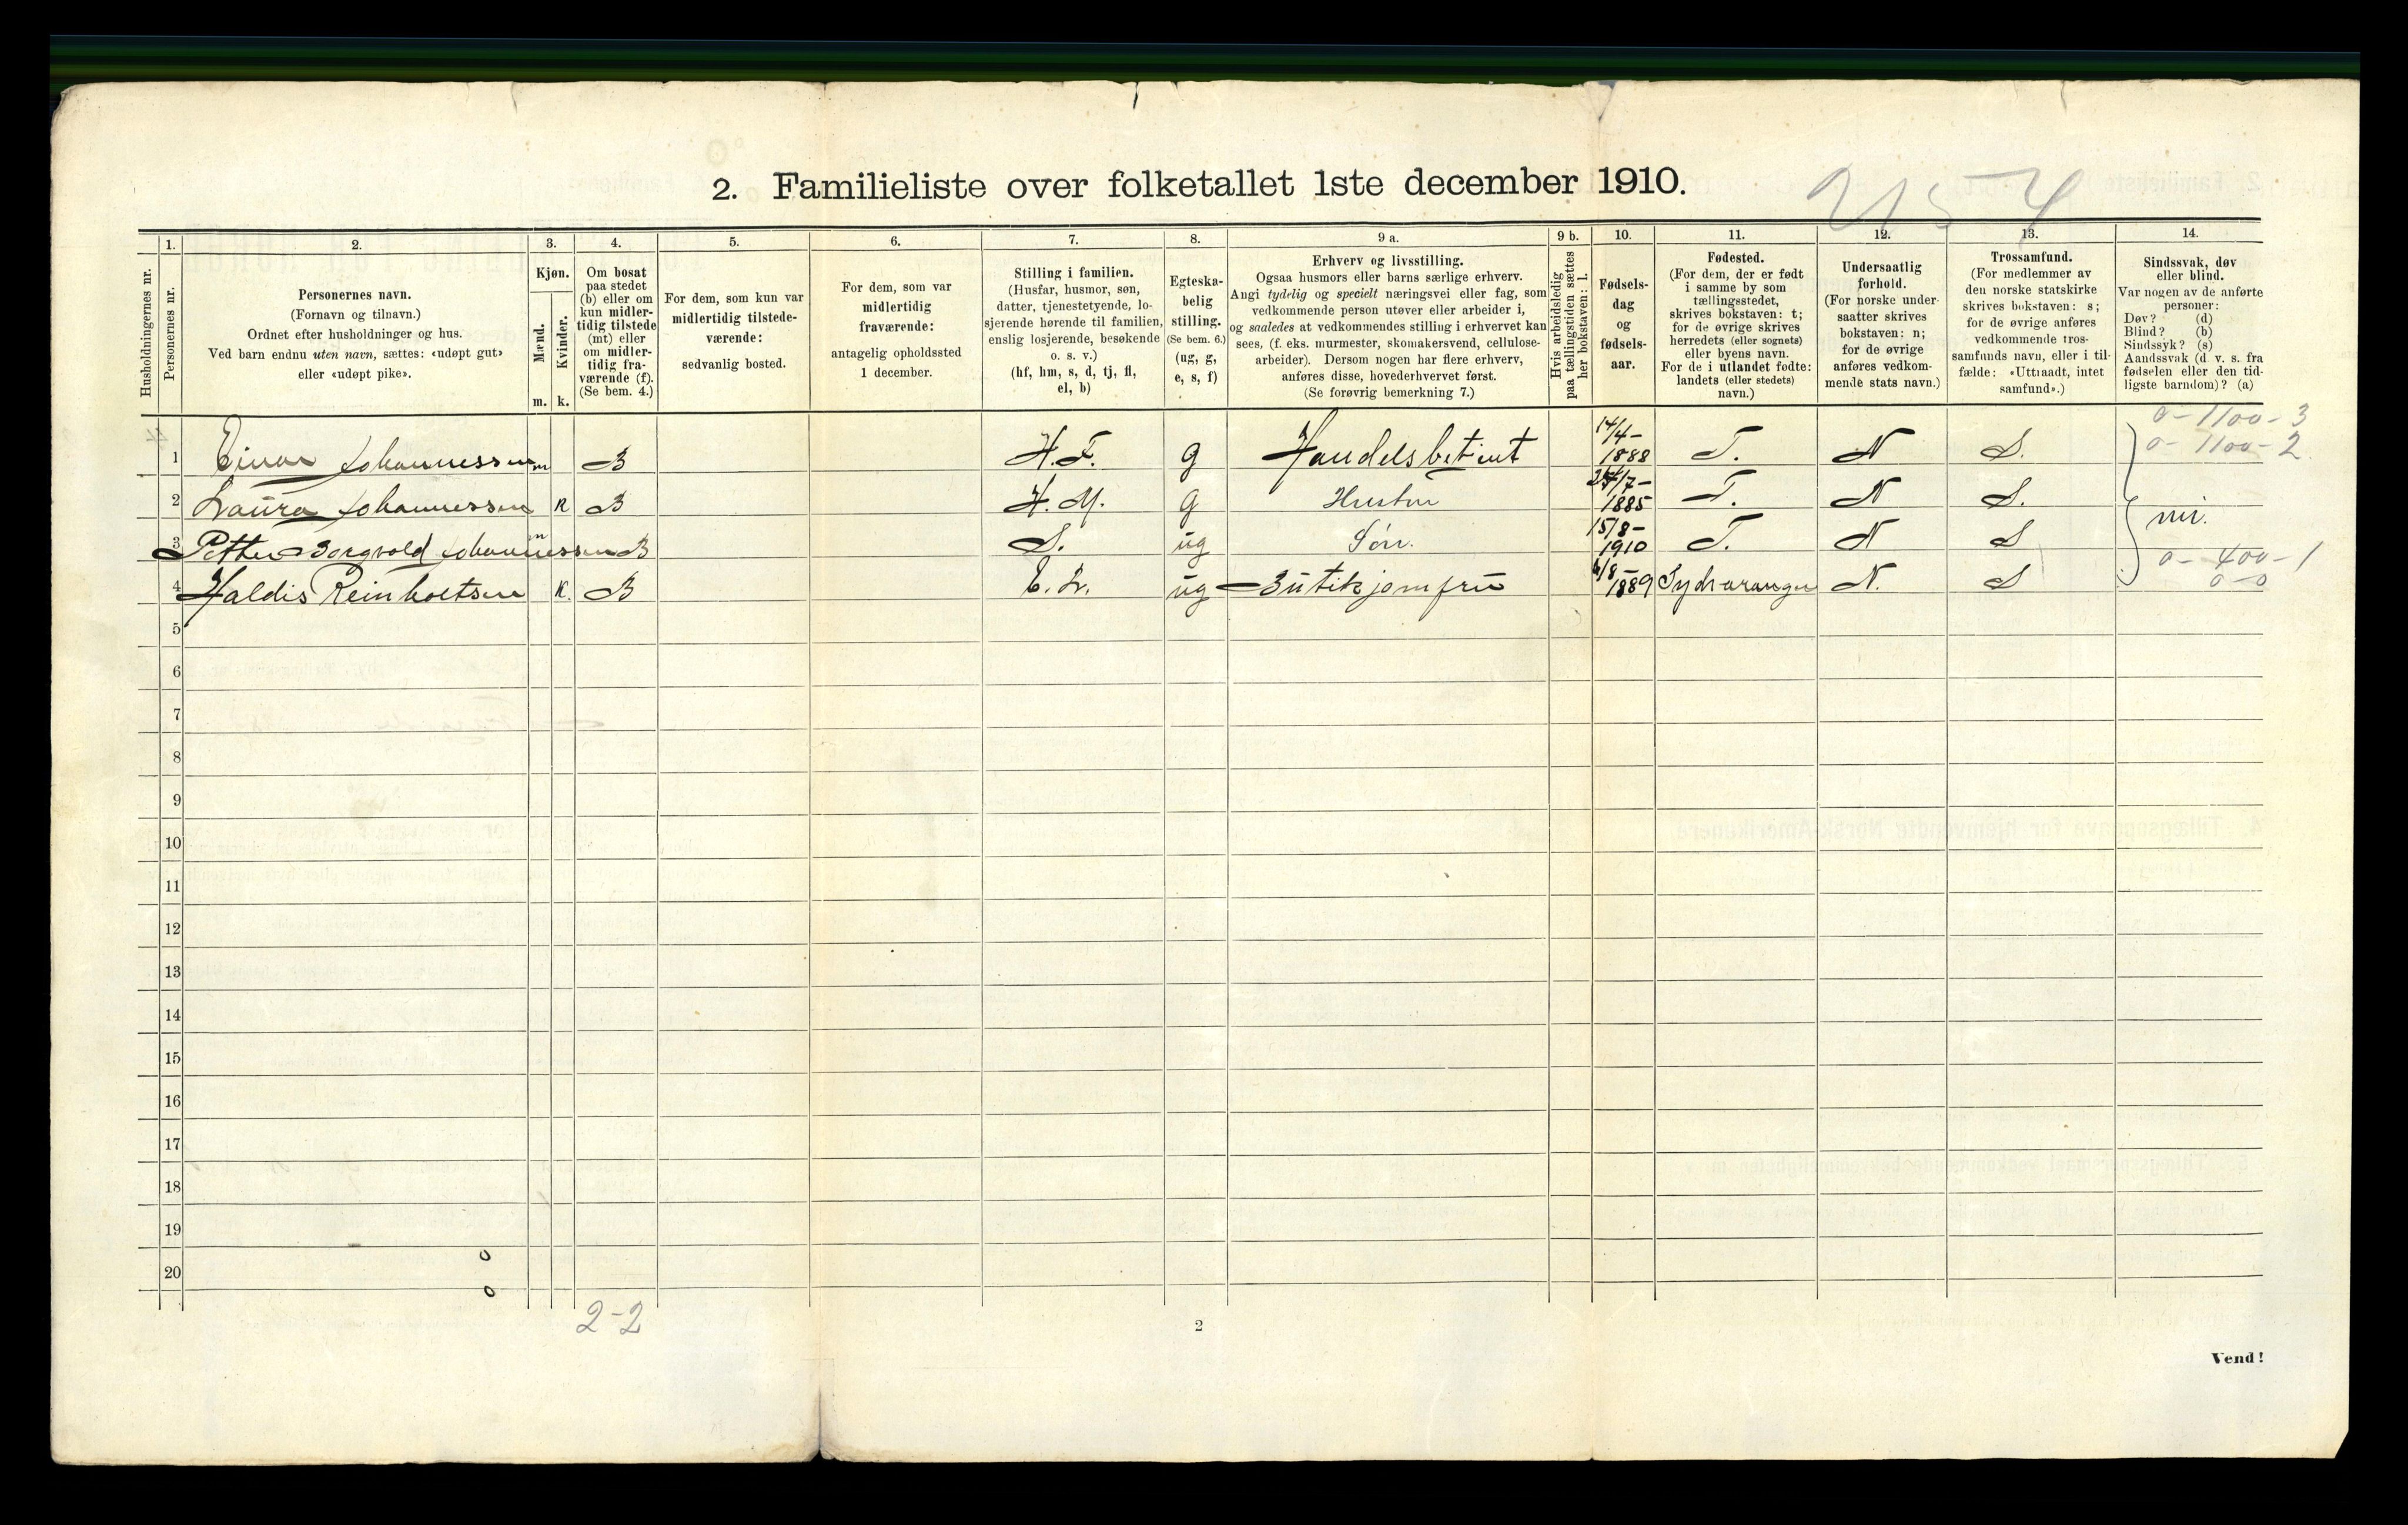 2. Familieliste over folketallet 1ste december 1910.
Husholdningernes nr.
1.
Personernes nr.
2.
Personernes navn.
(Fornavn og tilnavn.)
Ordnet efter husholdninger og hus.
Ved barn endnu uten navn, sættes: «udøpt gut»
eller «udøpt pike».
3.
Kjøn.
Mænd.
Kvinder.
m. k.
4.
Om bosat
paa stedet
(b) eller om
kun midler-
tidig tilstede
(mt) eller
om midler-
tidig fra-
værende (f).
(Se bem. 4.)
5.
For dem, som kun var
midlertidig tilstede-
værende:
sedvanlig bosted.
6.
For dem, som var
midlertidig
fraværende:
antagelig opholdssted
1 december.
7.
Stilling i familien.
(Husfar, husmor, søn,
datter, tjenestetyende, lo-
sjerende hørende til familien,
enslig losjerende, besøkende
o. s. v.)
(hf, hm, s, d, tj, fl,
el, b)
8.
Egteska-
belig
stilling.
(Se bem. 6.)
(ug, g,
e, s, f)
9 a.
Erhverv og livsstilling.
Ogsaa husmors eller barns særlige erhverv.
Angi tydelig og specielt næringsvei eller fag, som
vedkommende person utøver eller arbeider i,
og saaledes at vedkommendes stilling i erhvervet kan
sees, (f. eks. murmester, skomakersvend, cellulose-
arbeider). Dersom nogen har flere erhverv,
anføres disse, hovederhvervet først.
(Se forøvrig bemerkning 7.)
9 b.
Hvis arbeidsledig
paa tællingstiden sættes
her bokstaven: l.
10.
Fødsels-
dag
og
fødsels-
aar.
11.
Fødested.
(For dem, der er født
i samme by som
tællingsstedet,
skrives bokstaven: t;
for de øvrige skrives
herredets (eller sognets)
eller byens navn.
For de i utlandet fødte:
landets (eller stedets)
navn.)
12.
Undersaatlig
forhold.
(For norske under-
saatter skrives
bokstaven: n;
for de øvrige
anføres vedkom-
mende stats navn.)
13.
Trossamfund.
(For medlemmer av
den norske statskirke
skrives bokstaven: s;
for de øvrige anføres
vedkommende tros-
samfunds navn, eller i til-
fælde: «Uttraadt, intet
samfund».)
14.
Sindssvak, døv
eller blind.
Var nogen av de anførte
personer:
Døv? (d)
Blind? (b)
Sindssyk? (s)
Aandssvak (d. v. s. fra
fødselen eller den tid-
ligste barndom)? (a)
0 - 1100 - 3
1 Einar Johannessen m B H.F. g Handelsbetjent 14/4- 1888 T. N S. 0 - 1100 - 2
2 Laura Johannessen K B H.M. g Hustru /7- 1885 T. N S.
3 Petter Borgvold Johannessen m B S. ug Søn. 15/8- 1910 T. N S
0 - 400 - 1
4 Haldis Reinholtsen K. B E.L. ug Butikjomfru /8 1889 Sydvaranger N. S 0-0
5
6
7
8
9
10
11
12
13
14
15
16
17
18
19
20
2-2
2
Vend!